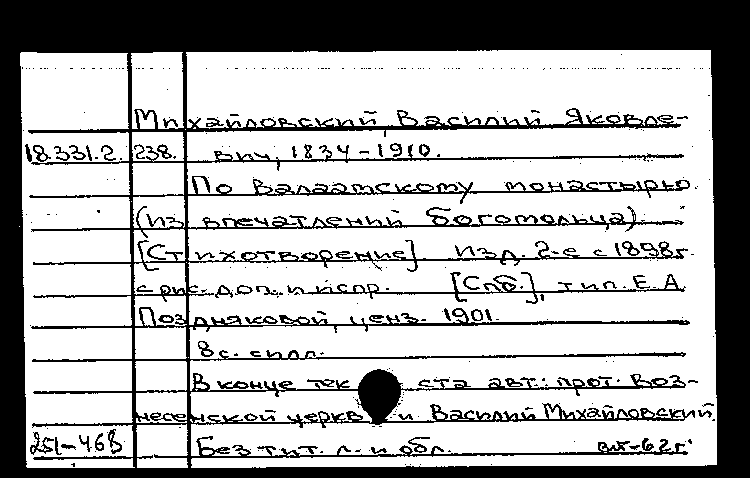 Михайловский, Василий Яковле-
18.331.2.238. вич, 1834-1910.
По Валаамскому монастырю
(из впечатлений богомольца).
[Стихотворение]. Изд. 2-е с 1898г.
с рис. доп. и испр. [Спб.], тип. Е.А.
Поздняковой, ценз. 1901.
8с. с илл.
В конце текста авт.: прот. Воз-
несенской церкви Василий Михайловский.
251-468 Без тит. л. и обл. вт-62г.